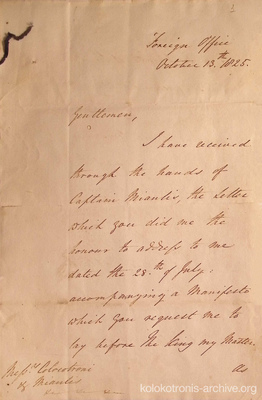 Foreign Office
October 13.th 1825.
Gentlemen,
I have received
through the hands of
Captain Miaulis, the Letter
which you did me the
honour to address to me
dated the 28.th of July:
accompanying a Manifesto
which you request me to
lay before The King my Master.
As
&
Miaulis
kolokotronis-archive.org